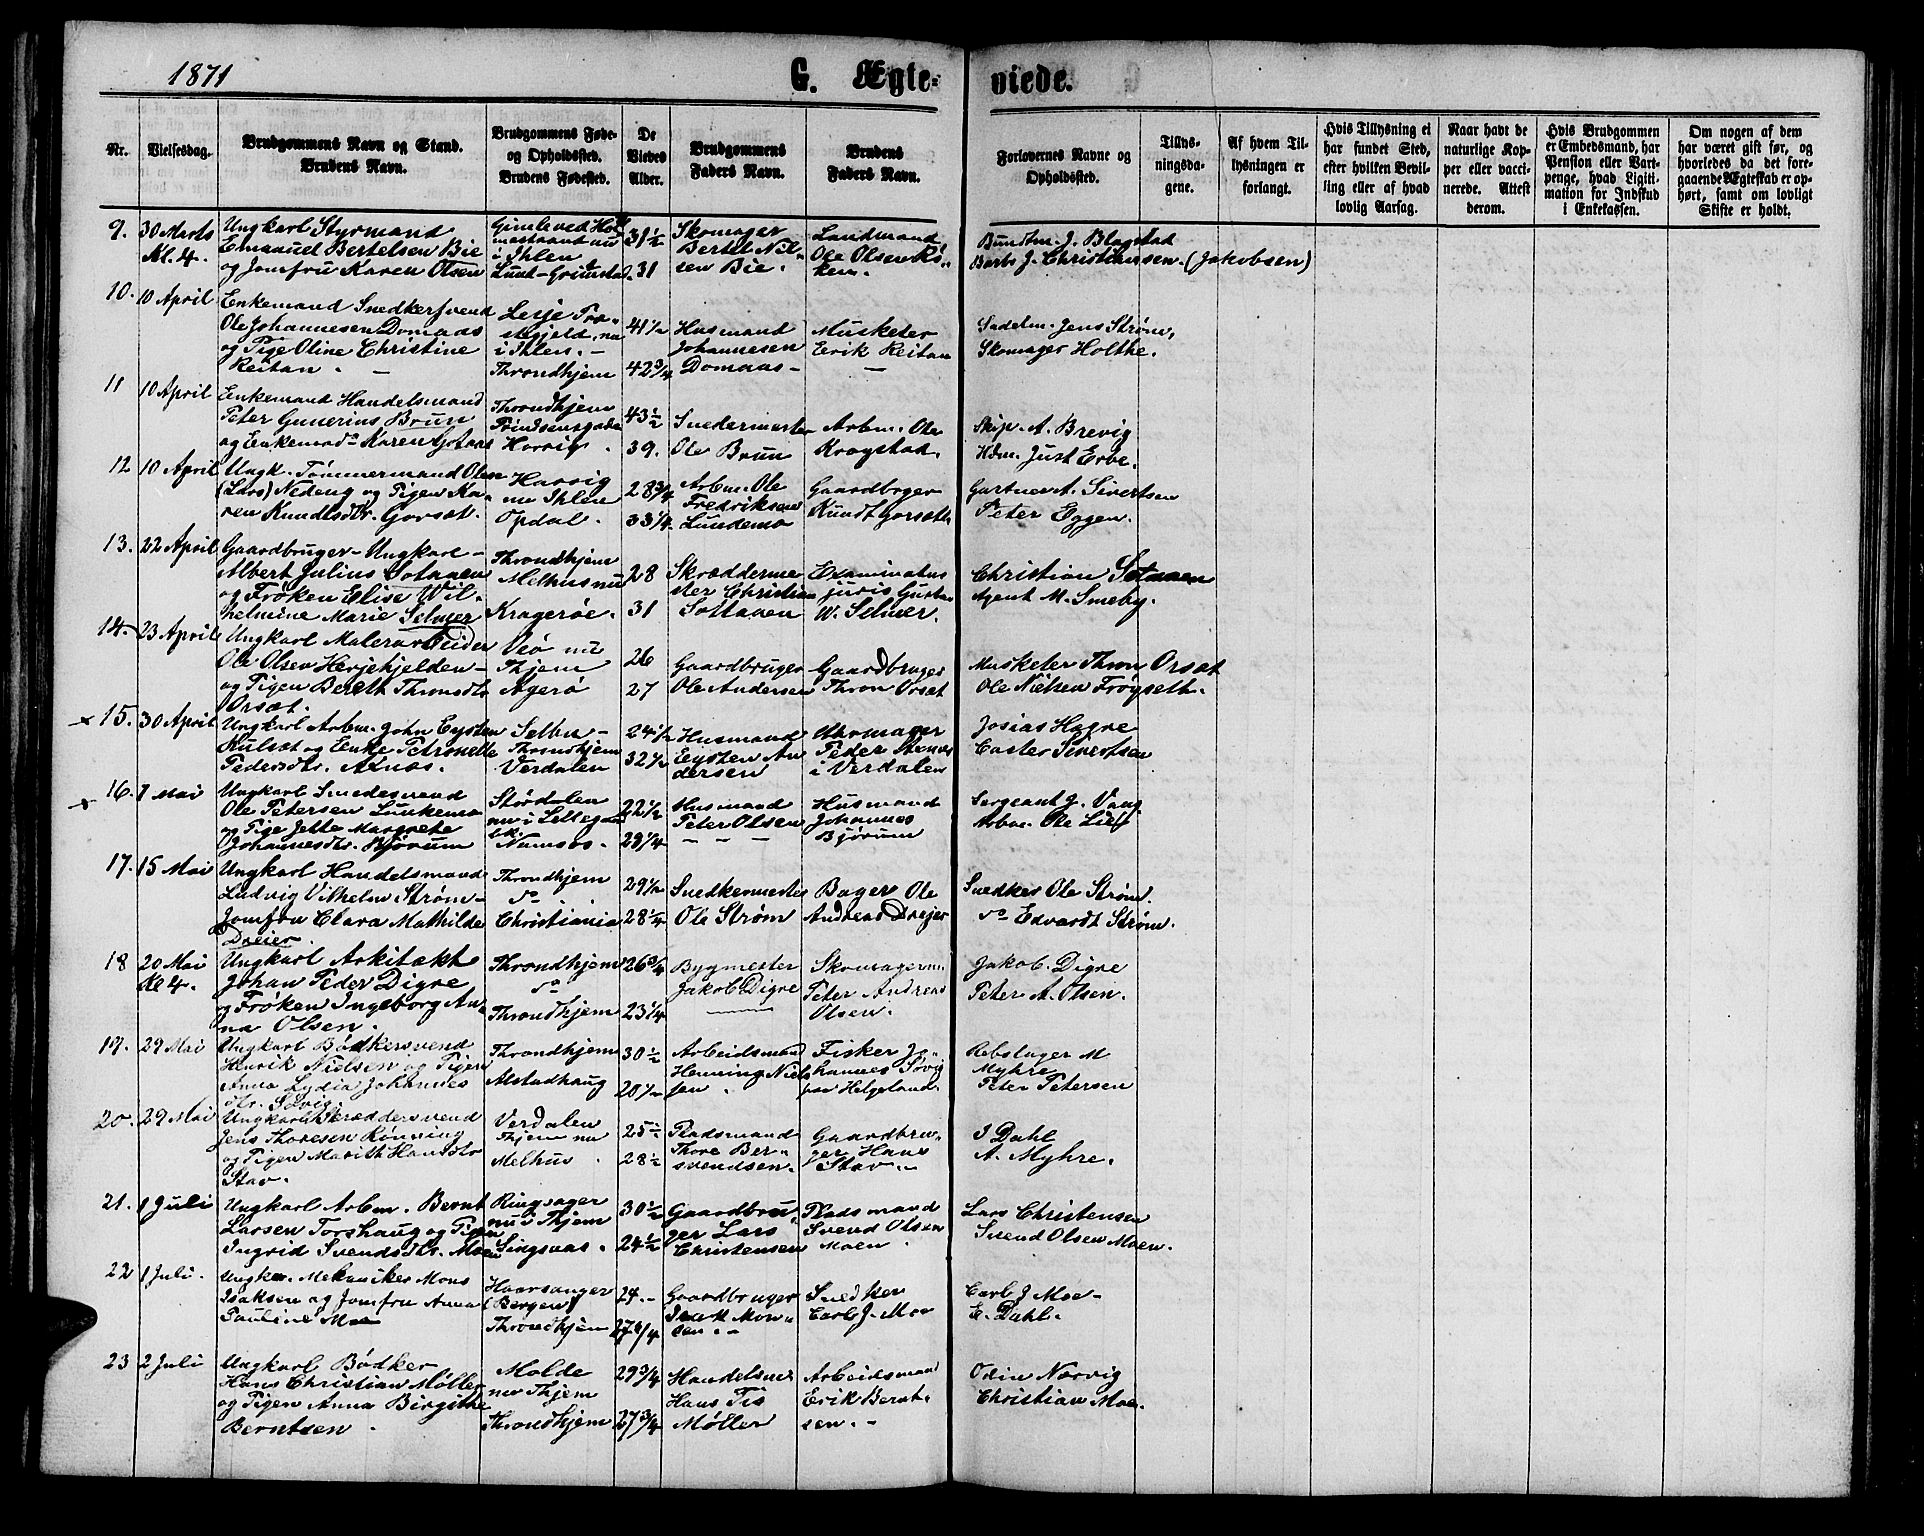 1871
G. Ægte-
viede.
Nr.
Vielsesdag.
Brudgommens Navn og Stand.
Brudens Navn.
Brudgommens Føde-
og Opholdssted.
Brudens Fødested.
De
Viedes
Alder.
Brudgommens
Faders Navn.
Brudens
Faders Navn.
Forlovernes Navne og
Opholdssted.
Tillys-
ningsda-
gene.
Af hvem Til-
lysningen er
forlangt.
Hvis Tillysning ei
har fundet Sted,
efter hvilken Bevil-
ling eller af hvad
lovlig Aarsag.
Naar havt de
naturlige Kop-
per eller vacci-
nerede. Attest
derom.
Hvis Brudgommen
er Embedsmand, har
Pension eller Vart-
penge, hvad Ligiti-
mation for Indskud
i Enkekassen.
Om nogen af dem
har været gift før, og
hvorledes da det fore-
gaaende Ægteskab er op-
hørt, samt om lovligt
Skifte er holdt.
9.
30 Marts
Kl. 4.
Ungkarl Styrmand
Emanuel Bertelsen Bie
og Jomfru Karen Olsen
Gimle ved Hol
mestrand nu
i Ihlen
Lund-Grimstad
31 1/2
31
Skomager
Bertel Nil-
sen Bie.
Landmand
Ole Olsen Rø-
ken.
Bundtm. J. Blagstad
Barb. J. Christiansen. (Jakobsen)
10.
10 April
Enkemand Snedkersvend
Ole Johannesen Domaas
og Pige Oline Christine
Reitan.
Lesje Præ-
stegjeld, nu
i Ihlen.
Throndhjem
41 1/2
42 3/4
Husmand
Johannesen
Domaas
Musketer
Erik Reitan
Sadelm. Jens Strøm,
Skomager Holthe.
11
10 April
Enkemand Handelsmand
Peter Gunerius Brun
og Enkemad. Karen Gotaas
Throndhjem
Prindsensgade
Horrig.
43 1/2
39.
Snedermester
Ole Brun
Arbm. Ole
Krogstad.
Skip. A. Brevig
Hdm. Just Erbe.
12
10 April
Ungk. Tømmermand Olsen
(Lars) Nedeng og Pigen Ka-
ren Knudtsdtr. Gorset.
Horrig
nu Ihlen
Opdal.
28 3/4
33 1/4
Arbm. Ole
Fredriksen
Lundemo
Gaardbrger
Knudt Gorseth
Gartner A. Sivertsen
Peter Eggen.
13.
22 April
Gaardbruger-Ungkarl-
Albert Julius Sotaaen
og Frøken Elise Wil-
helmine Marie Selmer
Throndhjem
Melhus nu
Kragerøe.
28
31
Skrædderme
ster Christian
Sottaaen
Examinatus
juris Gustav
W. Selmer.
Christian Sotaaen
Agent M. Smeby.
14.
23 April
Ungkarl Malerarbeider
Ole Olsen Herjehjelden
og Pigen Bereth Thronsdtr
Orsæt.
Veø nu
Thjem
Agerø
26
27
Gaardbruger
Ole Andersen
Gaardbruger
Thron Orsæt
Musketer Thron Orsæt
Ole Nielsen Frøyseth.
15.
30 April
Ungkarl Arbm. John Eysten
Kulset og Enke Petronelle
Pedersdtr. Axnæs.
Selbu-
Throndhjem
Verdalen
24 1/2
32 1/2
Husmand
Eysten An
dersen
Peder Axnæs
i Verdalen
Josias Hegre
Caster Sivertsen
16.
7 Mai
Ungkarl Smedesvend
Ole Petersen Lunkemo
og Pige Jette Margrete
Johannesdtr. Bjørum
Størdalen
nu i Lillegaar
Namsos.
22 1/2
29 1/4
Husmand
Peter Olsen
Husmand
Johannes
Bjørum
Sergeant J. Vang
Arbm. Ole Lief
17.
15 Mai
Ungkarl Handelsmand
Ludvig Vilhelm Strøm-
Jomfru Clara Mathilde
Dreier.
Throndhjem
do
Christiania
29 1/2
28 1/4
Snedkermester
Ole Strøm
Bager Ole
Andreas Drejer
Snedker Ole Strøm.
do Edvardt Strøm.
18
20 Mai
Kl 4.
Ungkarl Arkitækt
Johan Peder Digre
og Frøken Ingeborg An-
na Olsen.
Throndhjem
do
Throndhjem
26 3/4
23 1/4
Bygmester
Jakob Digre
Skomagerm.
Peter Andreas
Olsen.
Jakob Digre
Peter A. Olsen.
19.
29 Mai
Ungkarl Bødkersvend
Henrik Nielsen og Pigen
Anna Lydia Johannes
dtr. Søvig.
Throndhjem
Alstadhaug
30 1/2
20 1/2
Arbeidsmand
Henning Niel-
sen.
Fisker Jo-
hannes Søvig
paa Helgeland.
Rebslager M
Myhre
Peter Petersen
20.
29 Mai
Ungkarl Skræddersvend
Jens Thoresen Rønning
og Pigen Marith Hansdtr
Stav.
Verdalen
Thjem nu
Melhus.
25 1/2
28 1/2
Pladsmand
Thore Ber-
svendsen.
Gaardbru-
ger Hans
Stav.
J Dahl
A. Myhre.
21.
1 Juli
Ungkarl Arbm. Bernt
Larsen Torshaug og Pigen
Ingrid Svendsdtr. Moen
Ringsager
nu i Thjem
Singsaas.
30 1/2
24 1/2
Gaardbru
ger Lars
Christensen
Pladsmand
Svend Olsen
Moen.
Lars Christensen
Svend Olsen Moen.
22
1 Juli.
Ungkar. Mekaniker Mons
Isaksen og Jomfru Anna
Pauline Moe
Haarsanger
(Bergen)
Throndhjem
24.-
27 1/4
Gaardbruger
Isak Mon-
sen.
Snedker
Carl J. Moe
Carl J Moe-
E. Dahl.
23
2 Juli
Ungkarl Bødker
Hans Christian Møller
og Pigen Anna Birgithe
Berntsen.
Molde
nu Thjem
Throndhjem
29 3/4
27 3/4
Handelsmr
Hans Tis
Møller
Arbeidsmand
Erik Bernt-
sen.
Odin Norvig
Christian Moe.